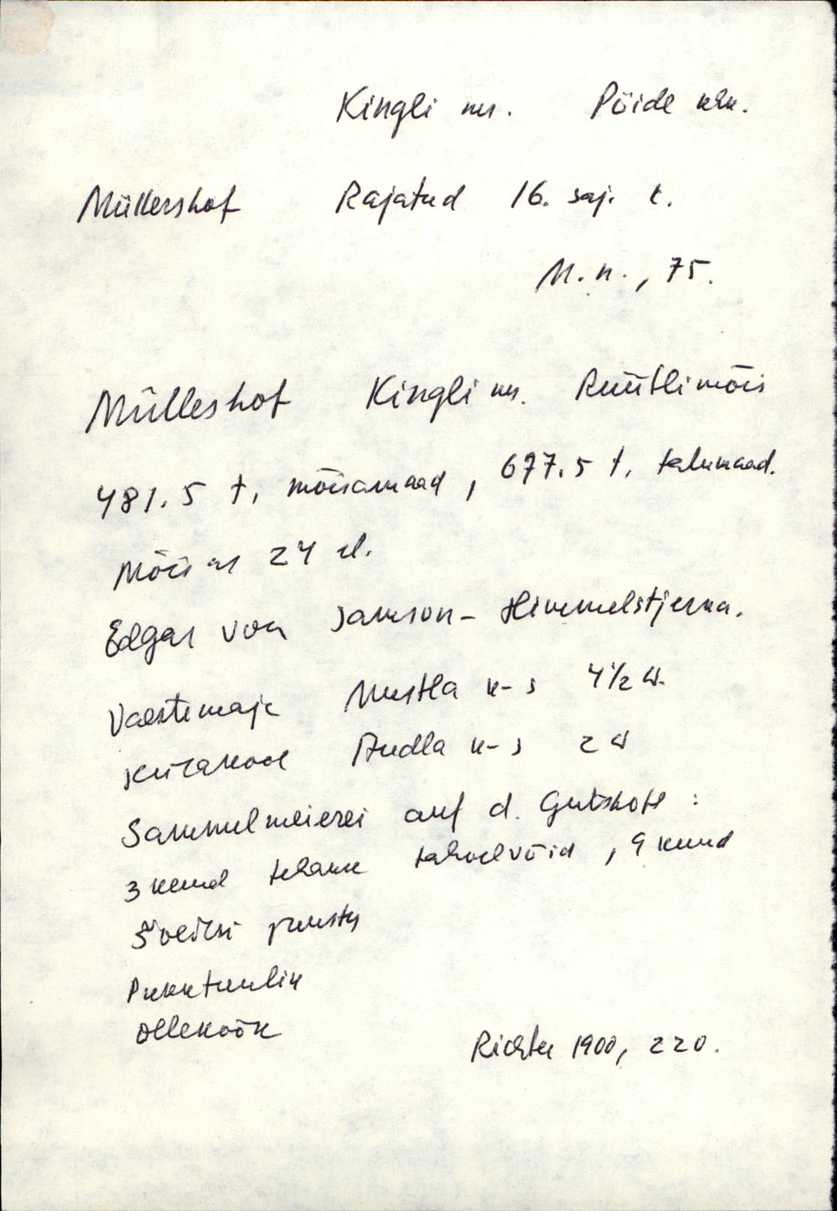 Kingli ms. Pöide khk.
Müllershof Rajatud 16. saj. l.
M.n., 75.
Mülleshof Kingli ms. Rüütlimõis
481.5 t. mõisamaad, 677.5 t. talumaad.
Mõisas 24 el.
Edgar von Samson-Himmelstjerna.
Vaestemaja Mustla k-s 4 1/2 v.
Audla k-s 2 v
Sammelmeierei auf d. Gutshofe:
3 kuud tahvelvõid, 9 kuud
Šveitsi juustu
Pukktuulik
Õlleköök
Richter 1900, 220.